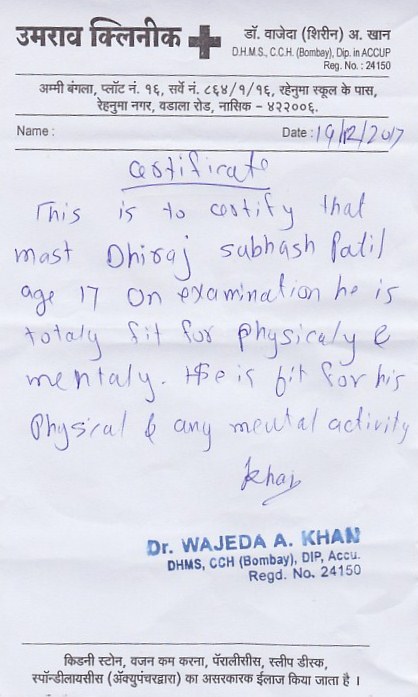 उमराव क्लिनीक
डॉ. वाजेदा (शिरीन) अ. खान
D.H.M.S., C.C.H. (Bombay), Dip. in ACCUP
Reg. No. : 24150
अम्मी बंगला, प्लॉट नं. १६, सर्वे नं. ८६४/१/१६, रहेनुमा स्कूल के पास,
रेहनुमा नगर, वडाला रोड, नासिक - ४२२००६.
Name : Date : 19/12/2017
Certificate
This is to certify that
mast Dhiraj Subhash Patil
age 17 on examination he is
totaly fit for physicaly &
mentaly. He is fit for his
Physical & any mental activity
Khan
Dr. WAJEDA A. KHAN
DHMS, CCH (Bombay), DIP, Accu.
Regd. No. 24150
किडनी स्टोन, वजन कम करना, पॅरालीसीस, स्लीप डीस्क,
स्पॉन्डीलायसीस (ॲक्युपंचरद्वारा) का असरकारक ईलाज किया जाता है ।